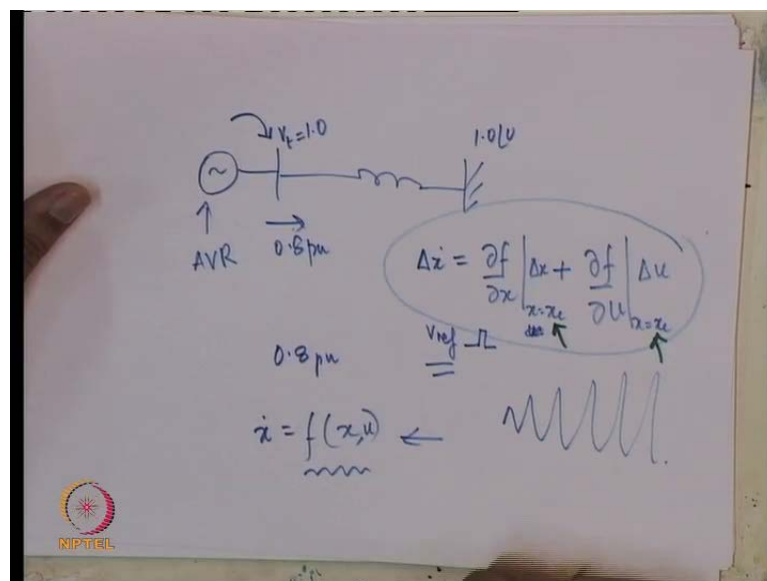 V_t=1.0
1.0∠0
~
AVR
0.8 pu
Δẋ = ∂f/∂x |_{x=x_e} Δx + ∂f/∂u |_{x=x_e} Δu
0.8 pu
Vref
ẋ = f(x,u) ←
NPTEL